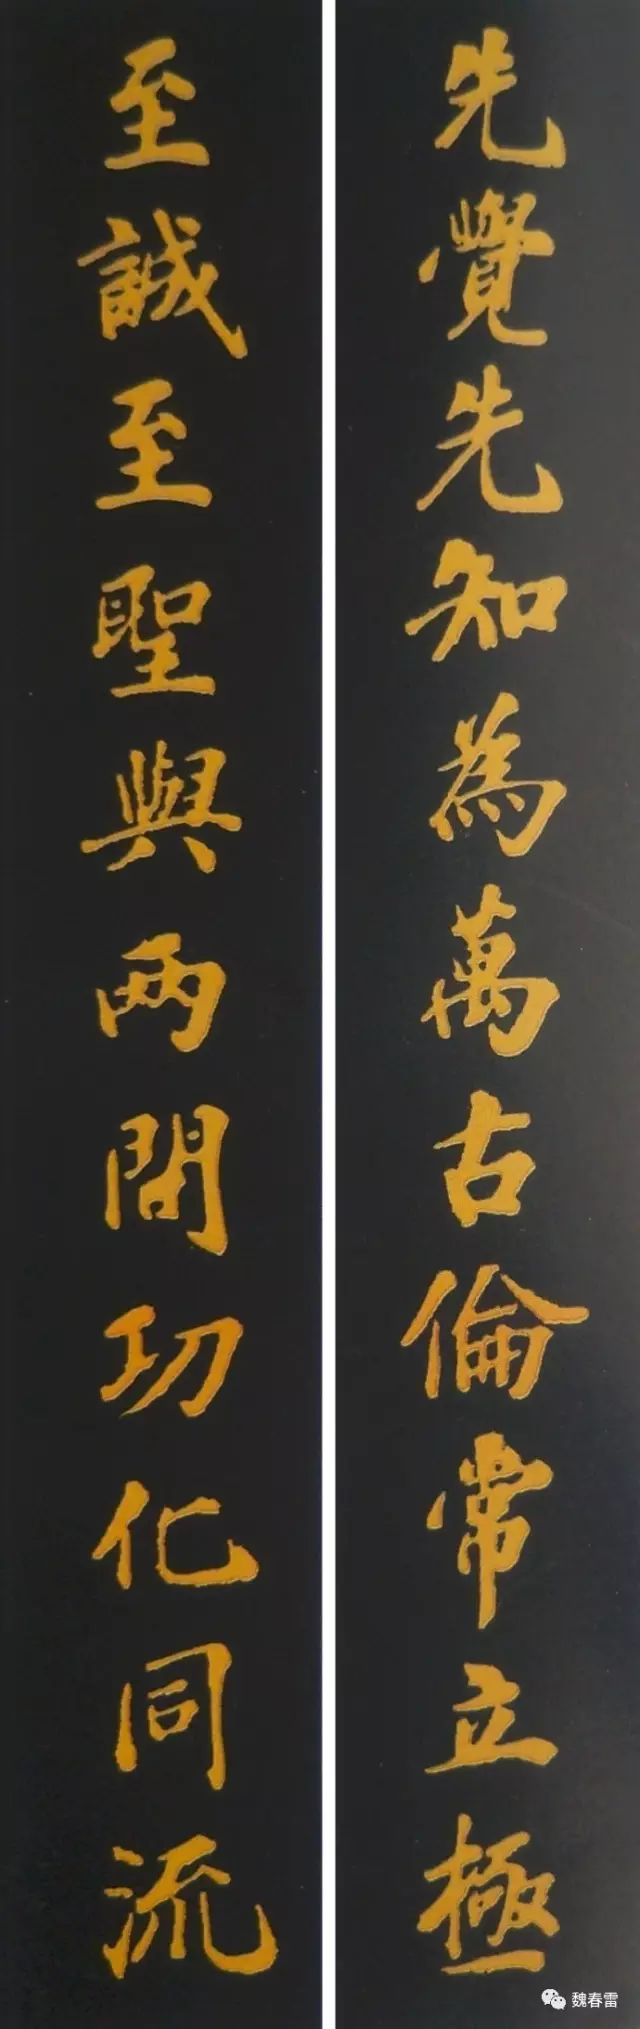 先覺先知為萬古倫常立極
至誠至聖與兩間功化同流
魏春雷